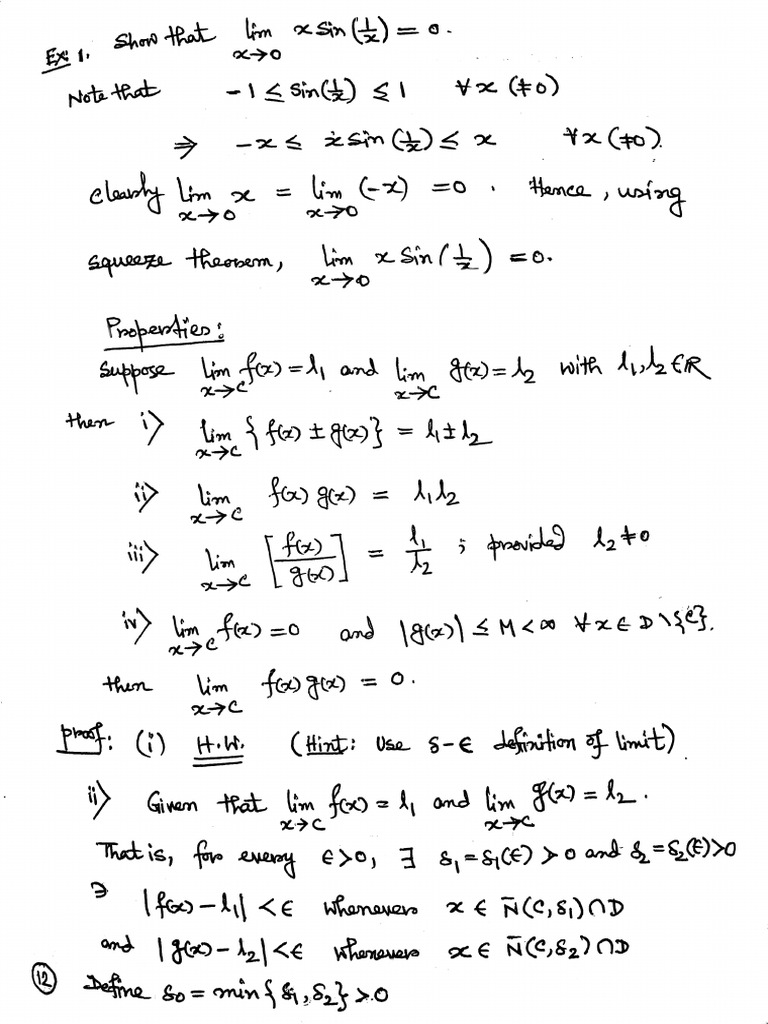 Ex: 1. Show that lim x→0 x sin(1/x) = 0.
Note that -1 ≤ sin(1/x) ≤ 1 ∀x (≠0)
⇒ -x ≤ x sin(1/x) ≤ x ∀x (≠0).
Clearly lim x→0 x = lim x→0 (-x) = 0. Hence, using
squeeze theorem, lim x→0 x sin(1/x) = 0.
Properties:
Suppose lim x→c f(x) = l₁ and lim x→c g(x) = l₂ with l₁, l₂ ∈ ℝ
then i) lim x→c {f(x) ± g(x)} = l₁ ± l₂
ii) lim x→c f(x) g(x) = l₁ l₂
iii) lim x→c [f(x)/g(x)] = l₁/l₂ ; provided l₂ ≠ 0
iv) lim x→c f(x) = 0 and |g(x)| ≤ M < ∞ ∀x ∈ D\{c}.
then lim x→c f(x) g(x) = 0.
Proof: (i) H.W. (Hint: Use δ-ε definition of limit)
ii) Given that lim x→c f(x) = l₁ and lim x→c g(x) = l₂.
That is, for every ε>0, ∃ δ₁ = δ₁(ε) > 0 and δ₂ = δ₂(ε) > 0
∋ |f(x) - l₁| < ε whenever x ∈ N̄(c, δ₁) ∩ D
and |g(x) - l₂| < ε whenever x ∈ N̄(c, δ₂) ∩ D
12 Define δ₀ = min{δ₁, δ₂} > 0